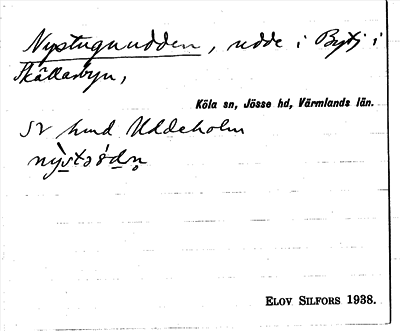 Nystuguudden, udde i Bytj i
Skällarbyn,
Köla sn, Jösse hd, Värmlands län.
SV hmd Uddeholm
ELOV SILFORS 1938.